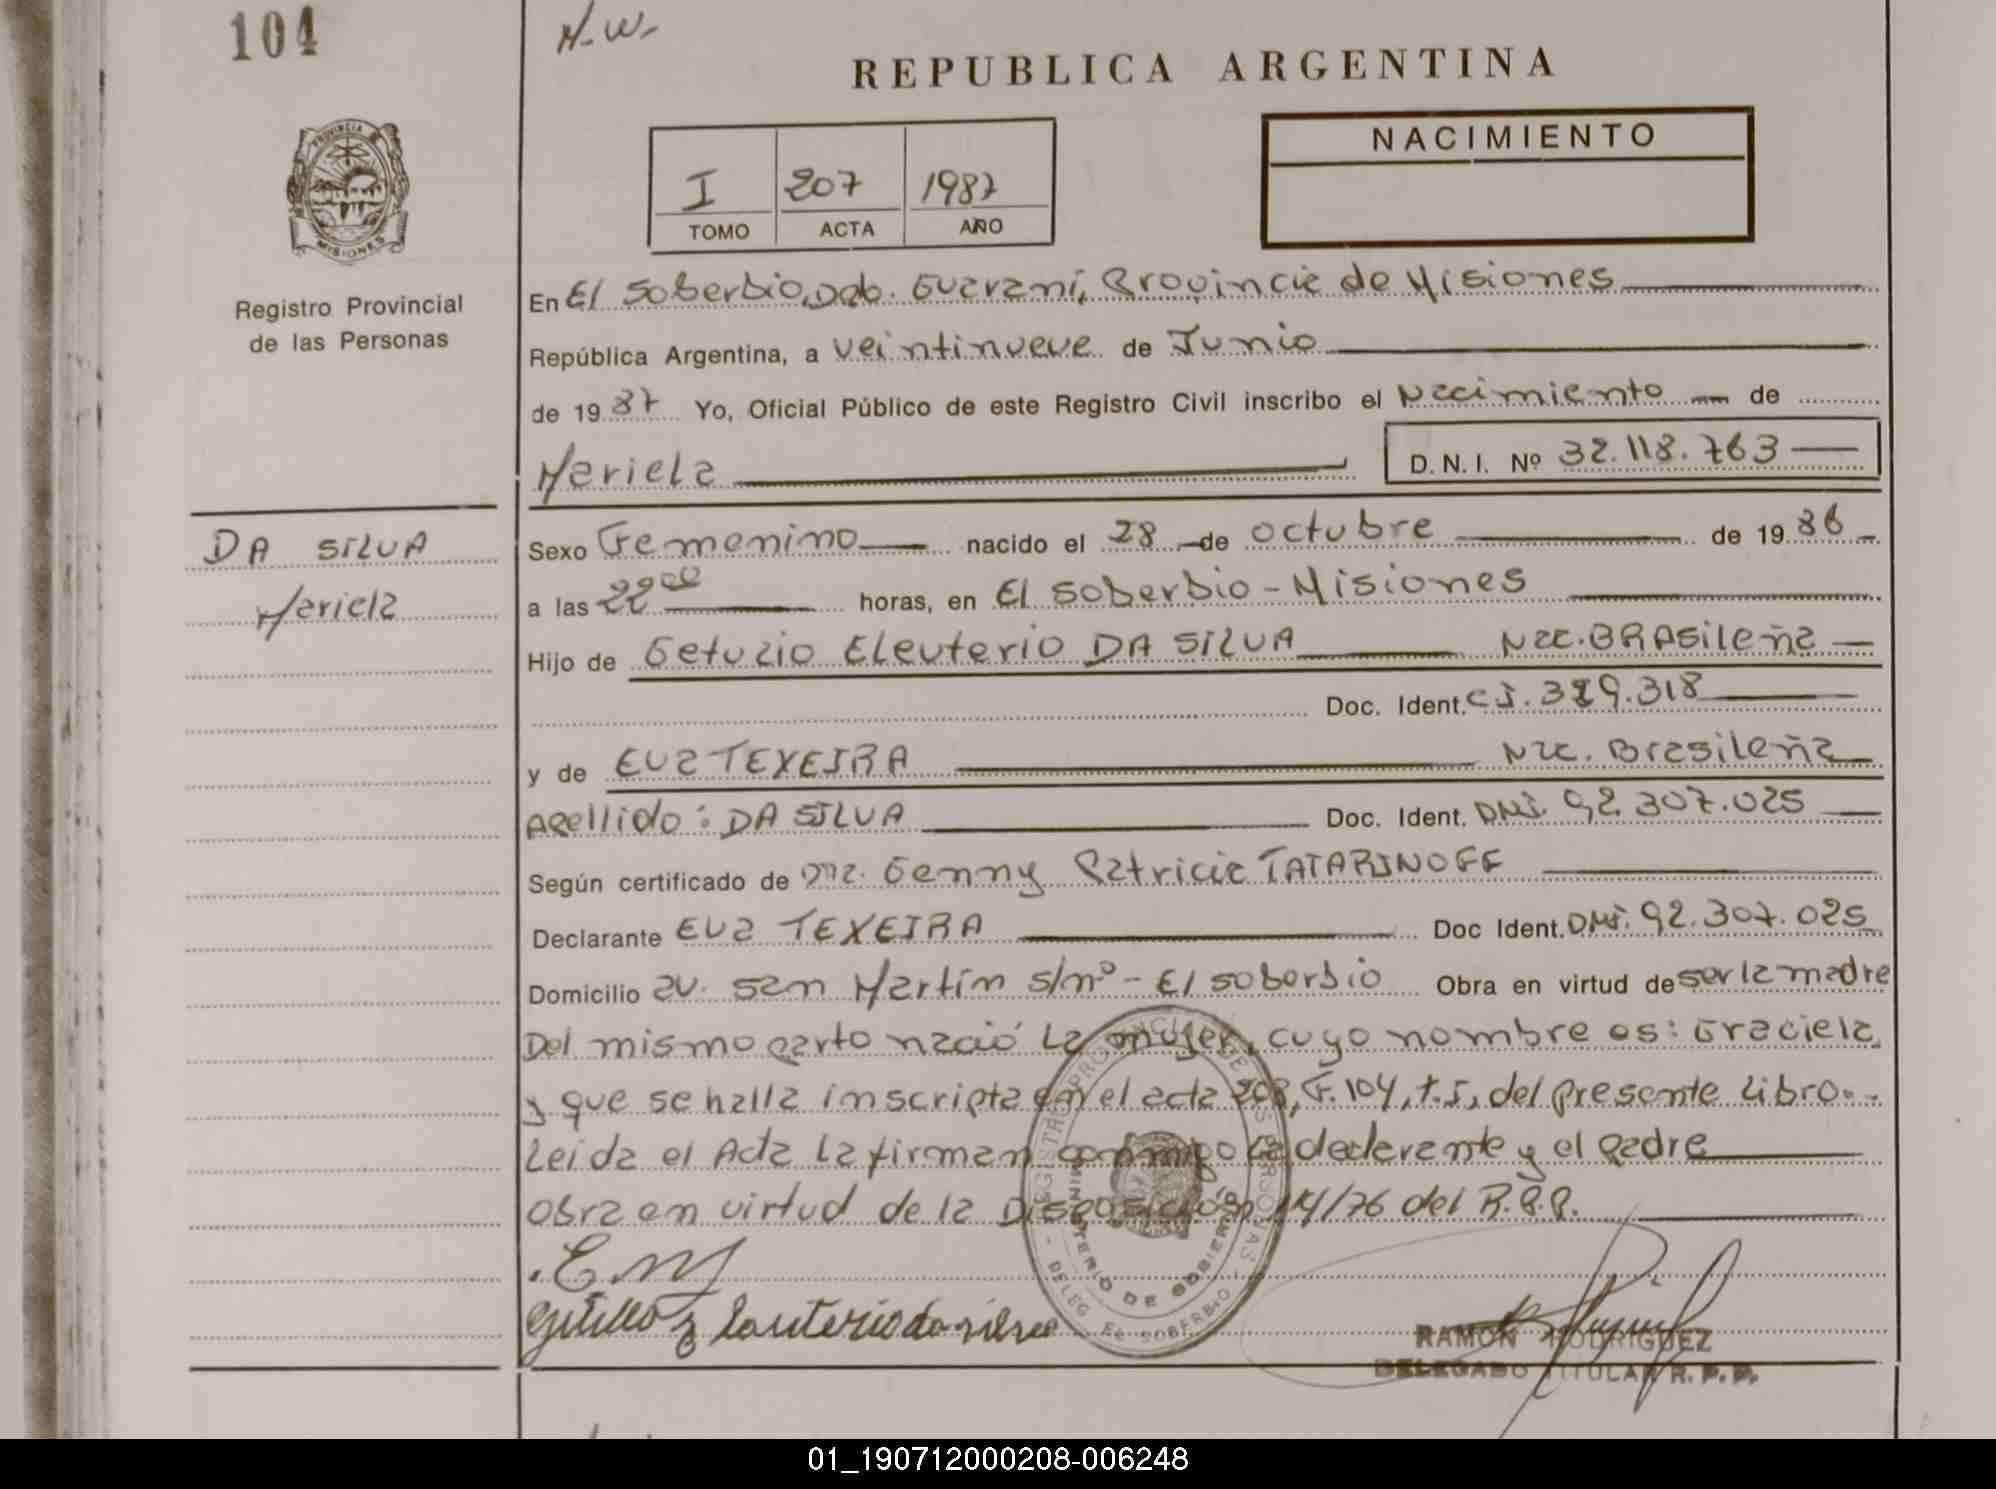 104
N-W-
REPUBLICA ARGENTINA
NACIMIENTO
I 207 1987
TOMO ACTA AÑO
PROVINCIA DE MISIONES
Registro Provincial
de las Personas
En El Soberbio, Dpto. Guaraní, Provincia de Misiones
República Argentina, a veintinueve de Junio
de 1987 Yo, Oficial Público de este Registro Civil inscribo el Nacimiento de
Mariela D.N.I. Nº 32.118.763
DA SILVA
Mariela
Sexo Femenino nacido el 28 de octubre de 1986
a las 22 00 horas, en El Soberbio - Misiones
Hijo de Getulio Eleuterio DA SILVA Nac. BRASileña
Doc. Ident. CI. 319.318
y de EVA TEXEIRA Nac. Brasileña
Apellido: DA SILVA Doc. Ident. DNI. 92.307.025
Según certificado de Dra. Genny Patricia TATARINOFF
Declarante EVA TEXEIRA Doc Ident. DNI. 92.307.025
Domicilio av. San Martín s/nº - El soberbio Obra en virtud de ser la madre
Del mismo parto nació La mujer, cuyo nombre es: Graciela
y que se halla inscripta en el acta 208, F. 104, t. I, del presente Libro.-
Leida el Acta La firman conmigo La declarante y el padre
Obra en virtud de la Disposición 14/76 del R.P.P.
REGISTRO PROVINCIAL DE LAS PERSONAS
MINISTERIO DE GOBIERNO
- DELEG. EL SOBERBIO -
RAMON RODRIGUEZ
DELEGADO TITULAR R.P.P.
01_190712000208-006248